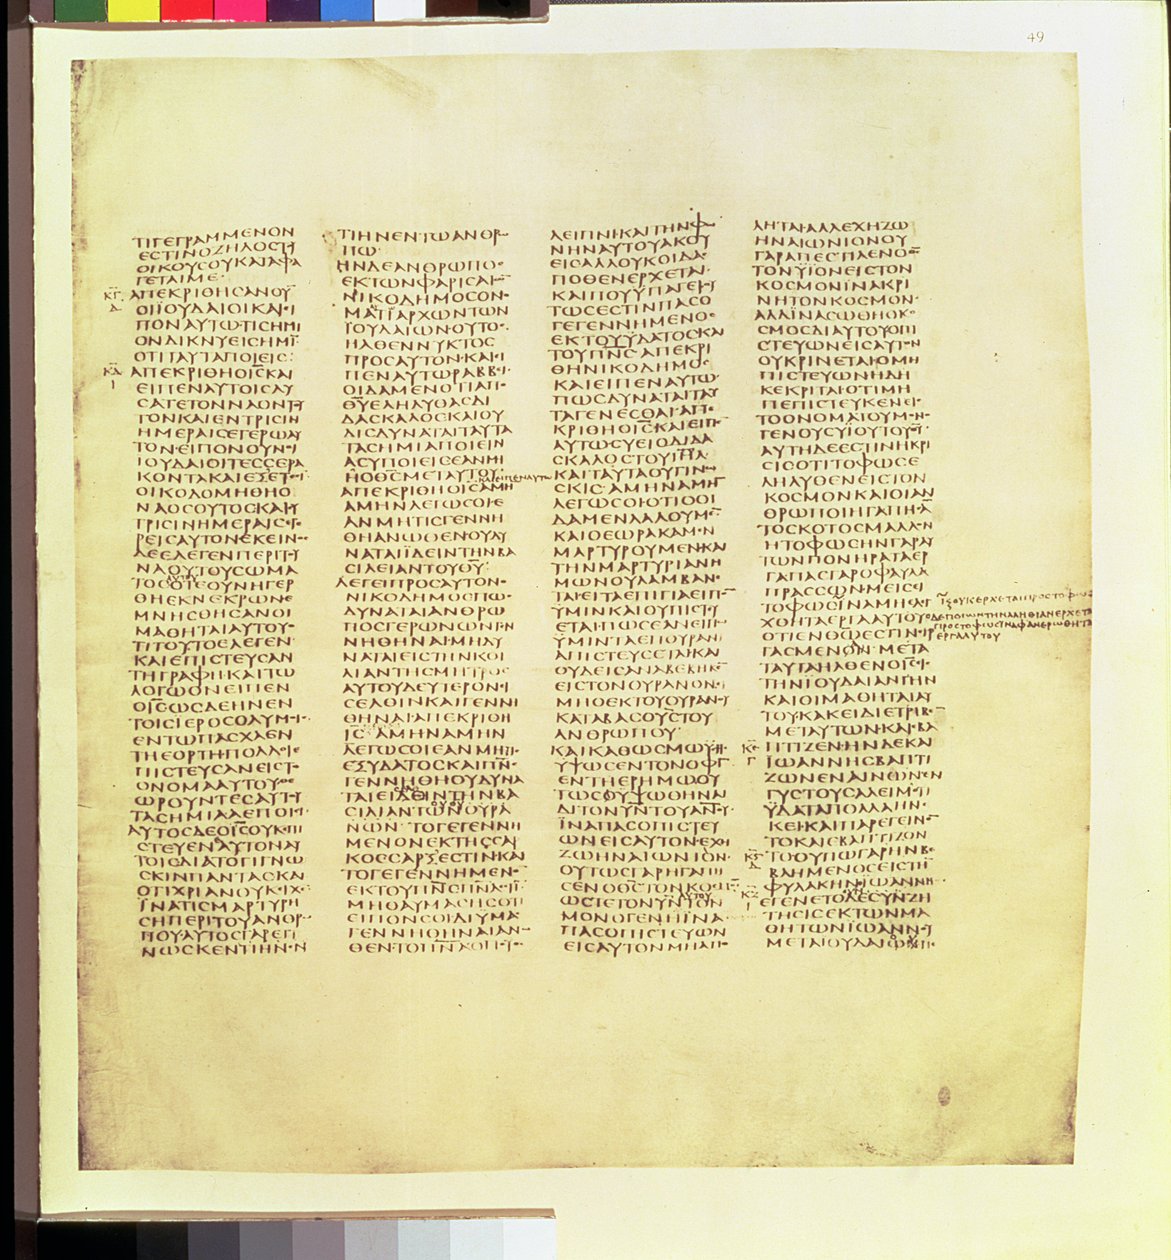 49
ΤΙΓΕΓΡΑΜΜΕΝΟΝ
ΕϹΤΙΝΟΖΗΛΟϹΤΗ
ΟΙΚΟΥϹΟΥΚΑΤΑΦΑ
ΓΕΤΑΙΜΕ
ΑΠΕΚΡΙΘΗϹΑΝΟΥ
ΟΙΪΟΥΔΑΙΟΙΚΑΙ
ΠΟΝΑΥΤΩΤΙϹΗΜΙ
ΟΝΔΙΚΝΥΕΙϹΗΜΙ
ΟΤΙΤΑΥΤΑΠΟΙΕΙϹ
ΑΠΕΚΡΙΘΗΟΙϹΚΑΙ
ΕΙΠΕΝΑΥΤΟΙϹΛΥ
ϹΑΤΕΤΟΝΝΑΟΝΤΗ
ΤΟΝΚΑΙΕΝΤΡΙϹΙΝ
ΗΜΕΡΑΙϹΕΓΕΡΩΑΥ
ΤΟΝΕΙΠΟΝΟΥΝΟΙ
ΙΟΥΔΑΙΟΙΤΕϹϹΕΡΑ
ΚΟΝΤΑΚΑΙΕΞΕΤ
ΟΙΚΟΔΟΜΗΘΗΟ
ΝΑΟϹΟΥΤΟϹΚΑΙΥ
ΤΡΙϹΙΝΗΜΕΡΑΙϹΕΓ
ΡΕΙϹΑΥΤΟΝΕΚΕΙΝ
ΔΕΕΛΕΓΕΝΠΕΡΙΤΥ
ΝΑΟΥΤΟΥϹΩΜΑ
ΤΟϹΟΤΕΟΥΝΗΓΕΡ
ΘΗΕΚΝΕΚΡΩΝΕ
ΜΝΗϹΘΗϹΑΝΟΙ
ΜΑΘΗΤΑΙΑΥΤΟΥ
ΤΙΤΟΥΤΟΕΛΕΓΕΝ
ΚΑΙΕΠΙϹΤΕΥϹΑΝ
ΤΗΓΡΑΦΗΚΑΙΤΩ
ΛΟΓΩΟΝΕΙΠΕΝ
ΟΙϹΩϹΔΕΗΝΕΝ
ΤΟΙϹΙΕΡΟϹΟΛΥΜΟΙ
ΕΝΤΩΠΑϹΧΑΕΝ
ΤΗΕΟΡΤΗΠΟΛΛΟΙΕ
ΠΙϹΤΕΥϹΑΝΕΙϹΤΟ
ΟΝΟΜΑΑΥΤΟΥ
ΩΡΟΥΝΤΕϹΑΥΤΥ
ΤΑϹΗΜΙΑΑΕΠΟΙΕΙ
ΑΥΤΟϹΔΕΟΙϹΟΥΚΕΠΙ
ϹΤΕΥΕΝΑΥΤΟΝΑΥ
ΤΟΙϹΔΙΑΤΟΓΙΓΝΩ
ϹΚΙΝΠΑΝΤΑϹΚΑΙ
ΟΤΙΧΡΙΑΝΟΥΚΙΧΕ
ΪΝΑΤΙϹΜΑΡΤΥΡΗ
ϹΗΠΕΡΙΤΟΥΑΝΘΡΩ
ΠΟΥΑΥΤΟϹΓΑΡΕΓΙ
ΝΩϹΚΕΝΤΙΗΝΕΝ
ΤΙΗΝΕΝΤΩΑΝΘΡ
ΠΩ
ΗΝΔΕΑΝΘΡΩΠΟϹ
ΕΚΤΩΝΦΑΡΙϹΑΙ
ΝΙΚΟΔΗΜΟϹΟΝΟ
ΜΑΤΙΑΡΧΩΝΤΩΝ
ΙΟΥΔΑΙΩΝΟΥΤΟϹ
ΗΛΘΕΝΝΥΚΤΟϹ
ΠΡΟϹΑΥΤΟΝΚΑΙΕΙ
ΠΕΝΑΥΤΩΡΑΒΒΕΙ
ΟΙΔΑΜΕΝΟΤΙΑΠΟ
ΘΥΕΛΗΛΥΘΑϹΔΙ
ΔΑϹΚΑΛΟϹΚΑΙΟΥ
ΔΙϹΔΥΝΑΤΑΙΤΑΥΤΑ
ΤΑϹΗΜΙΑΠΟΙΕΙΝ
ΑϹΥΠΟΙΕΙϹΕΑΝΜΗ
ΗΟΘϹΜΕΤΑΥΤΟΥ
ΚΑΙΕΙΠΕΝΑΥΤΩ
ΑΠΕΚΡΙΘΗΟΙϹΑΜΗ
ΑΜΗΝΛΕΓΩϹΟΙΕ
ΑΝΜΗΤΙϹΓΕΝΝΗ
ΘΗΑΝΩΘΕΝΟΥΔΥ
ΝΑΤΑΙΪΔΕΙΝΤΗΝΒΑ
ϹΙΛΕΙΑΝΤΟΥΘΥ
ΛΕΓΕΙΠΡΟϹΑΥΤΟΝ
ΝΙΚΟΔΗΜΟϹΠΩϹ
ΔΥΝΑΤΑΙΑΝΘΡΩ
ΠΟϹΓΕΡΩΝΩΝΓΕΝ
ΝΗΘΗΝΑΙΜΗΔΥ
ΝΑΤΑΙΕΙϹΤΗΝΚΟΙ
ΛΙΑΝΤΗϹΜΗΤΡΟϹ
ΑΥΤΟΥΔΕΥΤΕΡΟΝΕΙ
ϹΕΛΘΙΝΚΑΙΓΕΝΝΗ
ΘΗΝΑΙΑΠΕΚΡΙΘΗ
ΙϹΑΜΗΝΑΜΗΝ
ΛΕΓΩϹΟΙΕΑΝΜΗΤΙϹ
ΕΞΥΔΑΤΟϹΚΑΙΠΝϹ
ΓΕΝΝΗΘΗΟΥΔΥΝΑ
ΤΑΙΕΙϹΕΛΘΙΝΤΗΝΒΑ
ϹΙΛΙΑΝΤΩΝΟΥΡΑ
ΝΩΝΤΟΓΕΓΕΝΝΗ
ΜΕΝΟΝΕΚΤΗϹϹΑΡ
ΚΟϹϹΑΡΞΕϹΤΙΝΚΑΙ
ΤΟΓΕΓΕΝΝΗΜΕΝΟ
ΕΚΤΟΥΠΝϹΠΝΑΕϹΤΙ
ΜΗΘΑΥΜΑϹΗϹΟΤΙ
ΕΙΠΟΝϹΟΙΔΙΥΜΑϹ
ΓΕΝΝΗΘΗΝΑΙΑΝΩ
ΘΕΝΤΟΠΝΑΟΠΟΥ
ΛΕΙΠΝΙΚΑΙΤΗΝΦΩ
ΝΗΝΑΥΤΟΥΑΚΟΥ
ΕΙϹΑΛΛΟΥΚΟΙΔΑϹ
ΠΟΘΕΝΕΡΧΕΤΑΙ
ΚΑΙΠΟΥΫΠΑΓΕΙΟΥ
ΤΩϹΕϹΤΙΝΠΑϹΟ
ΓΕΓΕΝΝΗΜΕΝΟϹ
ΕΚΤΟΥΫΔΑΤΟϹΚΑΙ
ΤΟΥΠΝϹΑΠΕΚΡΙ
ΘΗΝΙΚΟΔΗΜΟϹ
ΚΑΙΕΙΠΕΝΑΥΤΩ
ΠΩϹΔΥΝΑΤΑΙΤΑΥ
ΤΑΓΕΝΕϹΘΑΙΑΠΕ
ΚΡΙΘΗΟΙϹΚΑΙΕΙΠΕ
ΑΥΤΩϹΥΕΙΟΔΙΔΑ
ϹΚΑΛΟϹΤΟΥΙΗΛ
ΚΑΙΤΑΥΤΑΟΥΓΙΝΩ
ϹΚΙϹΑΜΗΝΑΜΗ
ΛΕΓΩϹΟΙΟΤΙΟΟΙ
ΔΑΜΕΝΛΑΛΟΥΜΕ
ΚΑΙΟΕΩΡΑΚΑΜΕΝ
ΜΑΡΤΥΡΟΥΜΕΝΚΑΙ
ΤΗΝΜΑΡΤΥΡΙΑΝΗ
ΜΩΝΟΥΛΑΜΒΑΝΕ
ΤΑΙΕΙΤΑΕΠΙΓΙΑΕΙΠΟ
ΥΜΙΝΚΑΙΟΥΠΙϹΤΕΥ
ΕΤΑΙΠΩϹΕΑΝΕΙΠΩ
ΥΜΙΝΤΑΕΠΟΥΡΑΝΙ
ΑΠΙϹΤΕΥϹΕΤΑΙΚΑΙ
ΟΥΔΕΙϹΑΝΑΒΕΒΗΚΕ
ΕΙϹΤΟΝΟΥΡΑΝΟΝΕΙ
ΜΗΟΕΚΤΟΥΟΥΡΑΝΟΥ
ΚΑΤΑΒΑϹΟΥϹΤΟΥ
ΑΝΘΡΩΠΟΥ
ΚΑΙΚΑΘΩϹΜΩΥϹΗϹ
ΥΨΩϹΕΝΤΟΝΟΦΙ
ΕΝΤΗΕΡΗΜΩΟΥ
ΤΩϹΟΥΨΩΘΗΝΑΙ
ΔΙΤΟΝΥΝΤΟΥΑΝΟΥ
ΪΝΑΠΑϹΟΠΙϹΤΕΥ
ΩΝΕΙϹΑΥΤΟΝΕΧΗ
ΖΩΗΝΑΙΩΝΙΟΝ
ΟΥΤΩϹΓΑΡΗΓΑΠΗ
ϹΕΝΟΘϹΤΟΝΚΟϹΜΟ
ΩϹΤΕΤΟΝΥΝΤΟΝ
ΜΟΝΟΓΕΝΗΪΝΑ
ΠΑϹΟΠΙϹΤΕΥΩΝ
ΕΙϹΑΥΤΟΝΜΗΑΠΟ
ΛΗΤΑΙΑΛΛΕΧΗΖΩ
ΗΝΑΙΩΝΙΟΝΟΥ
ΓΑΡΑΠΕϹΤΙΛΕΝΟΘϹ
ΤΟΝΫΪΟΝΕΙϹΤΟΝ
ΚΟϹΜΟΝΪΝΑΚΡΙ
ΝΗΤΟΝΚΟϹΜΟΝ
ΑΛΛΪΝΑϹΩΘΗΟΚΟ
ϹΜΟϹΔΙΑΥΤΟΥΟΠΙ
ϹΤΕΥΩΝΕΙϹΑΥΤΟΝ
ΟΥΚΡΙΝΕΤΑΙΟΜΗ
ΠΙϹΤΕΥΩΝΗΔΗ
ΚΕΚΡΙΤΑΙΟΤΙΜΗ
ΠΕΠΙϹΤΕΥΚΕΝΕΙϹ
ΤΟΟΝΟΜΑΤΟΥΜΟΝΟ
ΓΕΝΟΥϹΥΪΟΥΤΟΥΘΥ
ΑΥΤΗΔΕΕϹΤΙΝΗΚΡΙ
ϹΙϹΟΤΙΤΟΦΩϹΕ
ΛΗΛΥΘΕΝΕΙϹΤΟΝ
ΚΟϹΜΟΝΚΑΙΟΙΑΝ
ΘΡΩΠΟΙΗΓΑΠΗϹΑ
ΤΟϹΚΟΤΟϹΜΑΛΛΟΝ
ΗΤΟΦΩϹΗΝΓΑΡΑΥ
ΤΩΝΠΟΝΗΡΑΤΑΕΡ
ΓΑΠΑϹΓΑΡΟΦΑΥΛΑ
ΠΡΑϹϹΩΝΜΕΙϹΕΙ
ΤΟΦΩϹΪΝΑΜΗΕΛΕΓ
ΧΘΗΤΑΕΡΓΑΑΥΤΟΥ
ΟΤΙΕΝΘΩΕϹΤΙΝΕΙΡ
ΓΑϹΜΕΝΟΝΜΕΤΑ
ΤΑΥΤΑΗΛΘΕΝΟΙϹΕΙϹ
ΤΗΝΙΟΥΔΑΙΑΝΓΗΝ
ΚΑΙΟΙΜΑΘΗΤΑΙΑΥ
ΤΟΥΚΑΚΕΙΔΙΕΤΡΙΒΕ
ΜΕΤΑΥΤΩΝΚΑΙΕΒΑ
ΠΤΙΖΕΝΗΝΔΕΚΑΙ
ΙΩΑΝΝΗϹΒΑΠΤΙ
ΖΩΝΕΝΑΙΝΩΝΕΝ
ΓΥϹΤΟΥϹΑΛΕΙΜΟΤΙ
ΫΔΑΤΑΠΟΛΛΑΗΝ
ΚΕΙΚΑΙΠΑΡΕΓΕΙΝΟ
ΤΟΚΑΙΕΒΑΠΤΙΖΟΝ
ΤΟΟΥΠΩΓΑΡΗΝΒΕ
ΒΛΗΜΕΝΟϹΕΙϹΤΗ
ΦΥΛΑΚΗΝΪΩΑΝΝΗϹ
ΕΓΕΝΕΤΟΔΕϹΥΝΖΗ
ΤΗϹΙϹΕΚΤΩΝΜΑ
ΘΗΤΩΝΙΩΑΝΝΟΥ
ΜΕΤΑΙΟΥΔΑΙΩΝ
ΟΥΚΕΡΧΕΤΑΙΠΡΟϹΤΟΦΩϹ
ΔΕΠΟΙΩΝΤΗΝΑΛΗΘΙΑΝΕΡΧΕΤΑΙ
ΠΡΟϹΤΟΦΩϹΙΝΑΦΑΝΕΡΩΘΗΤΑ
ΕΡΓΑΑΥΤΟΥ